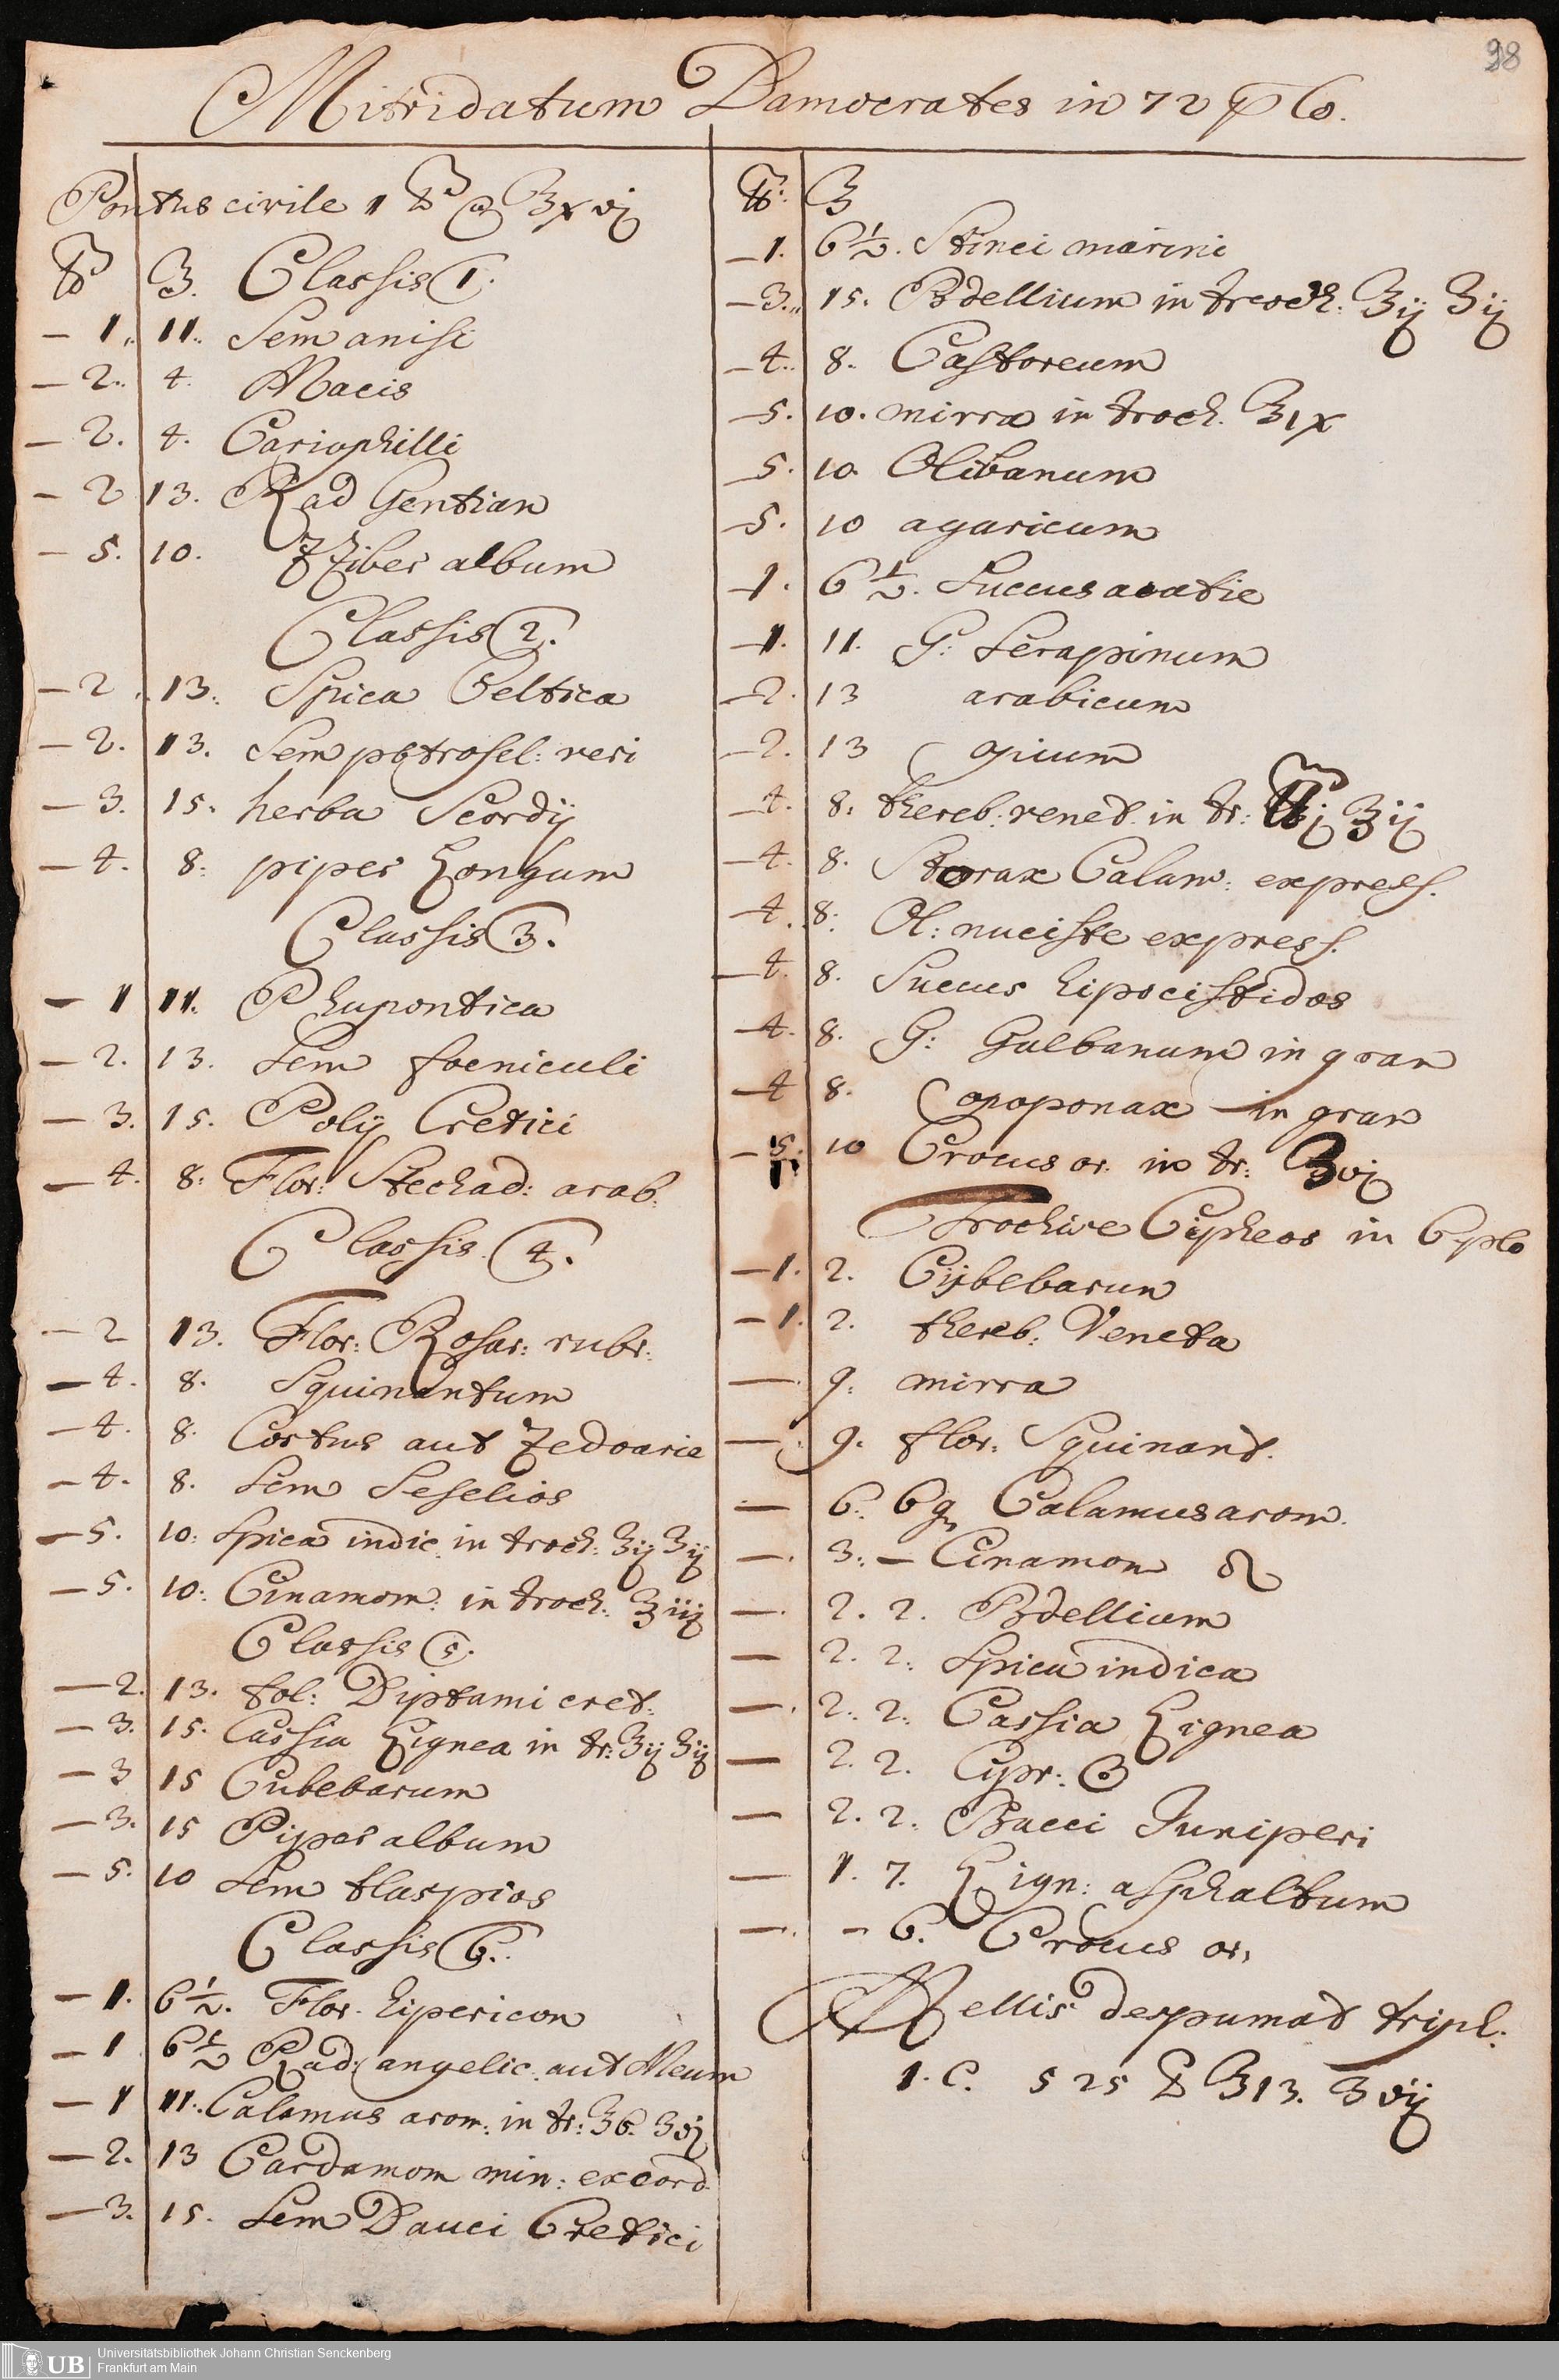 98
Mitridatum Damocrates in 72 plo.
Pontus civile 1 ℔ a ℥ xvj
℔ ℥. Classis 1.
– 1. 11. Sem anisi
– 2. 4. Macis
– 2. 4. Cariophilli
– 2 13. Rad Gentian
– 5. 10. ZZiber album
Classis 2.
– 2. 13. Spica Celtica
– 2. 13. Sem petrosel: veri
– 3. 15. herba Scordij
– 4. 8: piper Longum
Classis 3.
– 1 11. Rhupontica
– 2. 13. Sem foeniculi
– 3. 15. Polij Cretici
– 4. 8: Flor: Stechad: arab:
Classis 4.
– 2 13. Flor: Rosar: rubr:
– 4. 8. Squinantum
– 4. 8. Costus aut Zedoarie
– 4. 8. Sem Seselios
– 5. 10: Spica indic. in troch: ℥ij ʒij
– 5. 10: Cinamom: in troch: ℥iij
Classis 5.
– 2. 13. fol: Diptami cret:
– 3. 15. Cassia Lignea in tr: ℥ij ʒij
– 3 15 Cubebarum
– 3. 15 Piper album
– 5. 10 Sem tlaspios
Classis 6.
– 1. 6 1/2. Flor. hipericon
– 1 6 1/2 Rad: angelic. aut Meum
– 1 11. Calamus arom: in tr: ℥6. ʒvj
– 2. 13 Cardamom min: excord.
– 3. 15. Sem Dauci Cretici
℔: ℥
– 1. 6 1/2. Stinci marini
– 3. 15. Bdellium in troch: ℥ij ʒij
– 4. 8. Castoreum
– 5. 10. mirra in troch. ℥ix
– 5. 10. Olibanum
– 5. 10 agaricum
– 1. 6 1/2. Succus acatie
– 1. 11. G: Serapinum
– 2. 13 arabicum
– 2. 13 opium
– 4. 8: thereb: venet. in tr: ℔j ℥ij
– 4. 8. Storax Calam: express.
– 4. 8. Ol: nuciste express.
– 4. 8. Succus hipocistidos
– 4. 8. G: Galbanum in gran
– 4 8. opoponax – in gran
– 5. 10 Crocus or. in tr: ℥vj
Trochisc Cipheos in 6 plo
– 1. 2. Cijbebarum
– 1. 2. thereb: Veneta
– 9: mirra
– 9. flor: Squinant.
– 6. 6 g Calamus arom.
– 3. – Cinamom
– 2. 2. Bdellium
– 2. 2. Spica indica
– 2. 2. Cassia Lignea
– 2. 2. Cypr:
– 2. 2. Bacci Juniperi
– 1. 7. Lign: asphaltum
– – 6. Crocus or,
Mellis despumat tripl:
1. C. 525 ℔ ℥13. ʒvij
UB Universitätsbibliothek Johann Christian Senckenberg
Frankfurt am Main